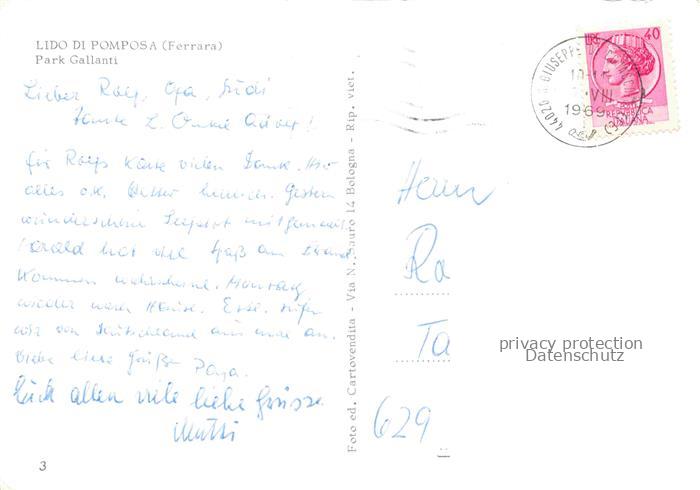 LIDO DI POMPOSA (Ferrara)
Park Gallanti
Lieber Rolf, Opa, Trudi
Tante L. Onkel Adolf!
für Rolfs Karte vielen Dank. Hier
alles o.k. Wetter herrlich. Gestern
wunderschöne Seefahrt mitgemacht.
Harald hat viel Spaß am Strand
Kommen wahrscheinl. Montag
wieder nach Hause. Evtl. rufen
wir von Deutschland aus mal an.
Viele liebe Grüße Papa.
Euch allen viele liebe Grüsse
Mutti
3
Foto ed. Cartovendita - Via N. Sauro 14 Bologna - Rip. viet.
44020 S. GIUSEPPE
VIII
1969
LIRE 40
REPUBBLICA
ITALIANA
Herrn
Ro
Ta
629
privacy protection
Datenschutz